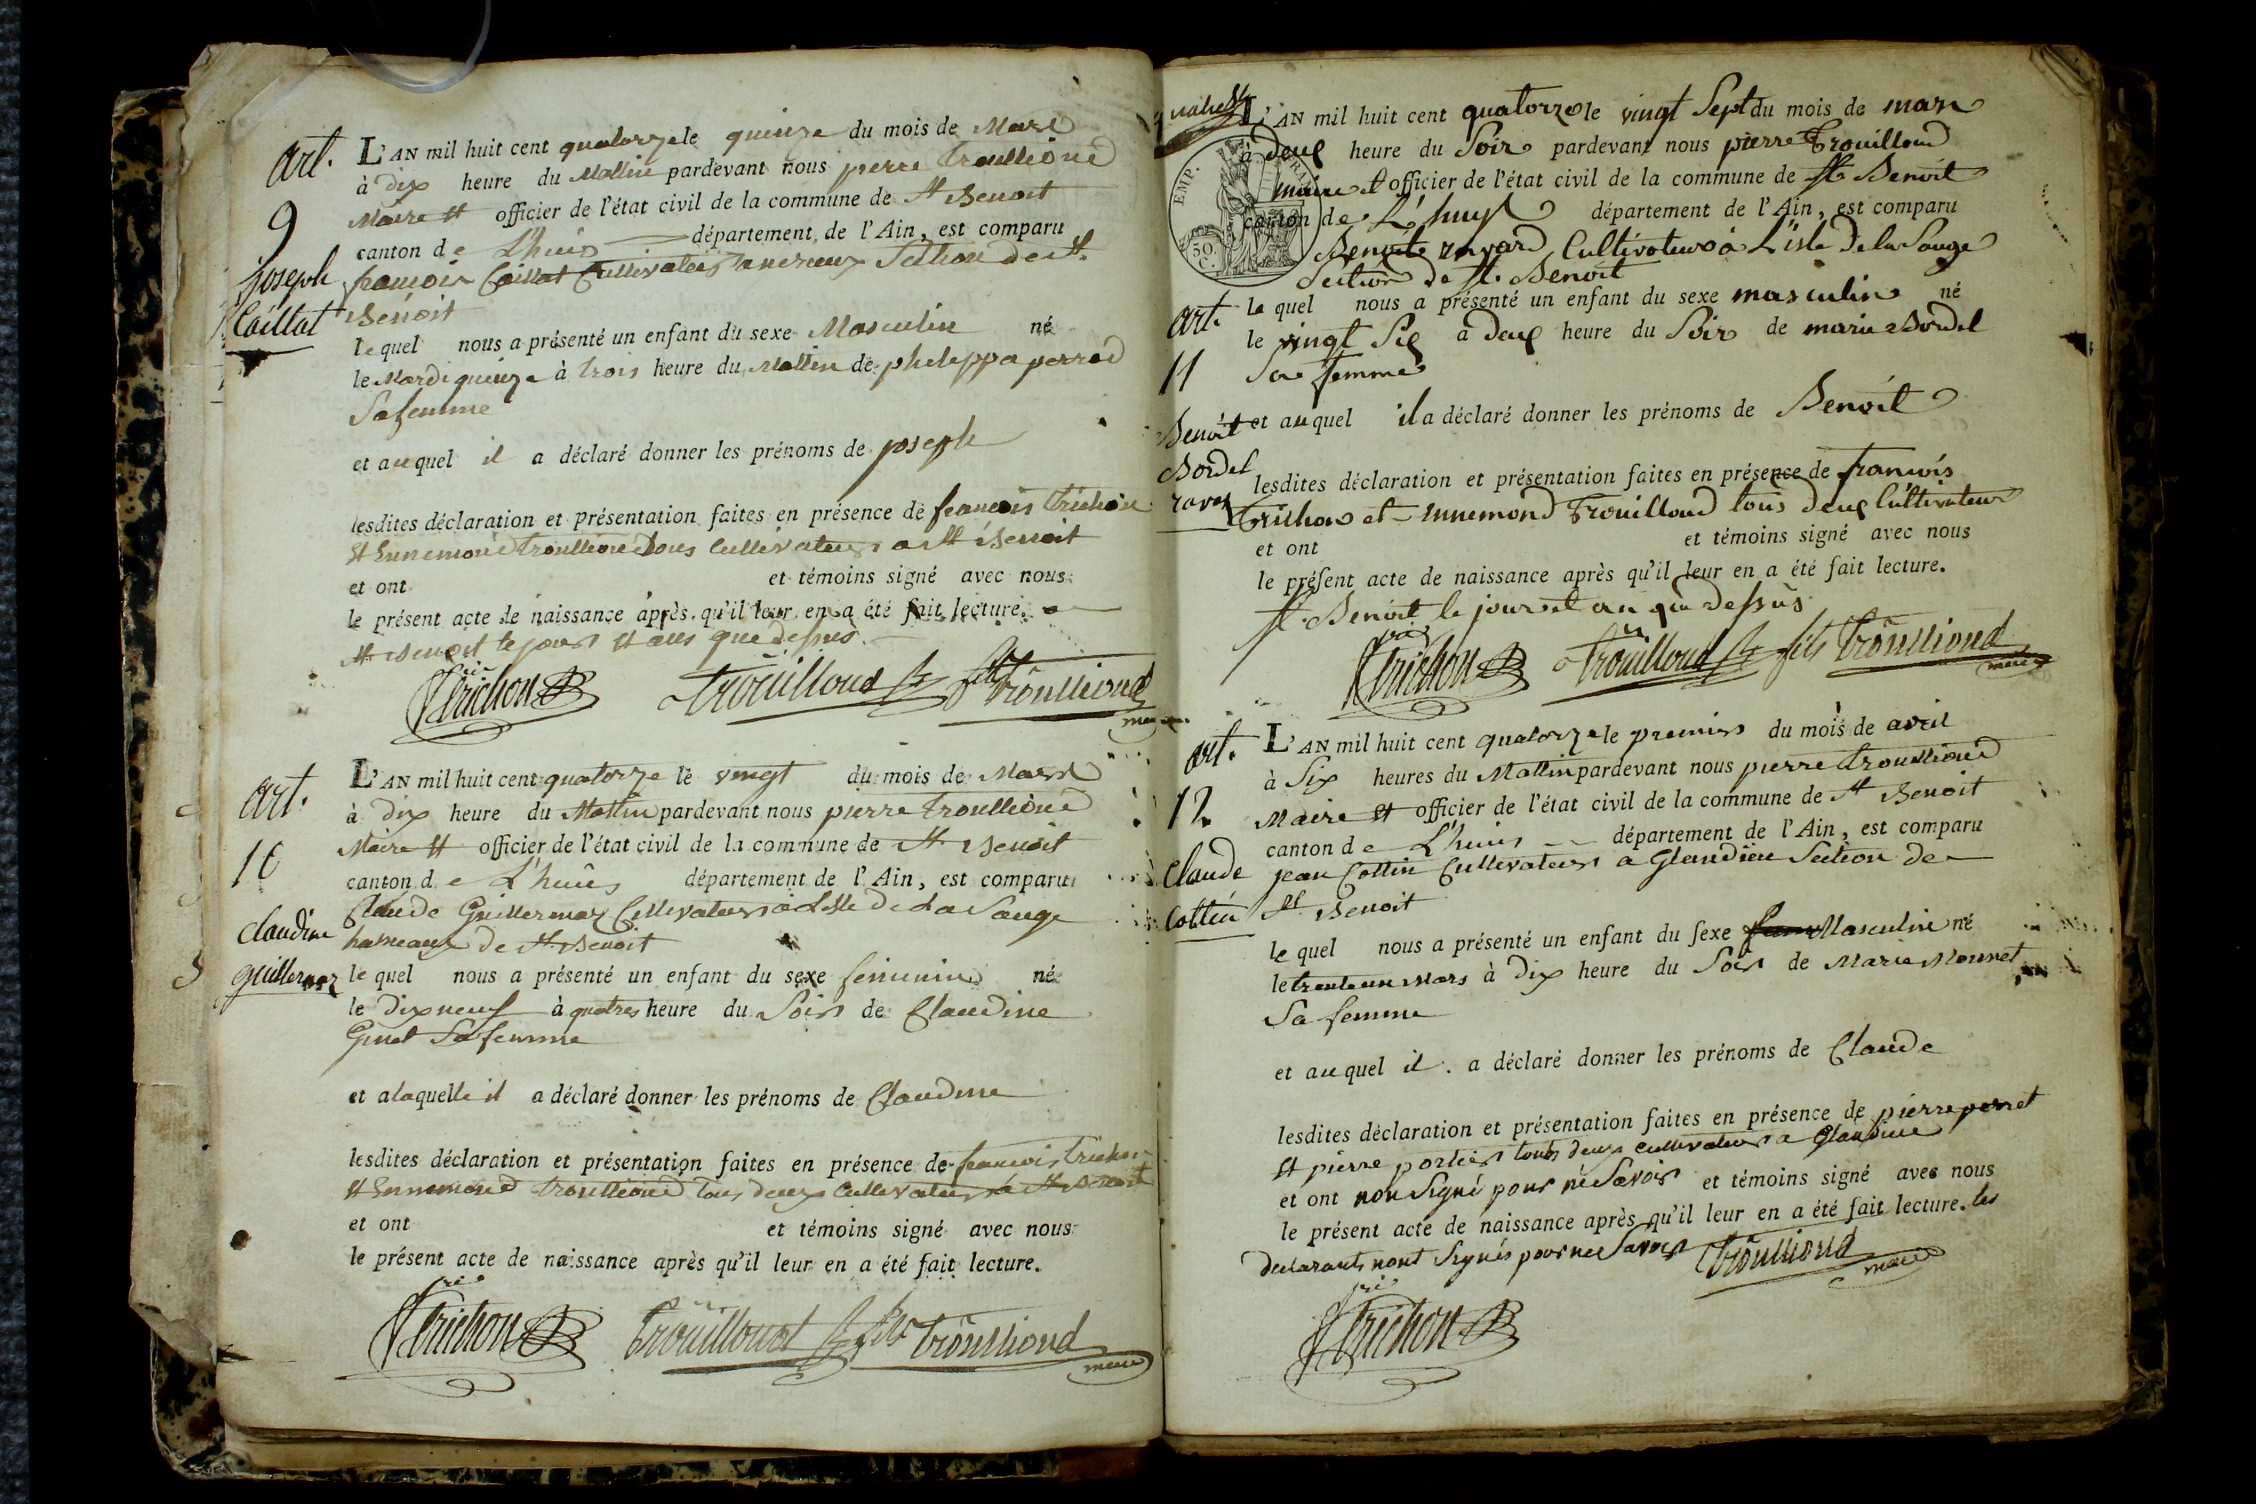 art.
9
joseph
Caillat
L'AN mil huit cent quatorze le quinze du mois de Mars
à dix heure du Mattin pardevant nous pierre Troullioud
Maire Et officier de l'état civil de la commune de St Benoit
canton de L'huis département de l'Ain, est comparu
francois Caillat Cultivateur Section de St.
Benoit
lequel nous a présenté un enfant du sexe Masculin né
le Mardi quinze à trois heure du Mattin de phileppa perrod
Sa femme
et auquel il a déclaré donner les prénoms de joseph
lesdites déclaration et présentation faites en présence de francois Trichon
Et Ennemond Troullioud tous Cultivateurs a St Benoit
et ont et témoins signé avec nous
le présent acte de naissance après qu'il leur en a été fait lecture.
St. Benoit le jours Et ans que dessus
fris Trichon Trouilloud fils Troullioud
maire
art.
10
Claudine
guillermoz
L'AN mil huit cent quatorze le vingt du mois de Mars
à dix heure du Mattin pardevant nous pierre Troullioud
Maire Et officier de l'état civil de la commune de St. Benoit
canton de L'huis département de l'Ain, est comparu
Claude Guillermoz Cultivateur à Lisle De La Sauge
hameaux de St. Benoit
lequel nous a présenté un enfant du sexe feminin né
le dix neuf à quatres heure du Soir de Claudine
Ginet Sa femme
et alaquelle il a déclaré donner les prénoms de Claudine
lesdites déclaration et présentation faites en présence de francois Trichon
Et Ennemond Troullioud tous deux Cultivateurs à St Benoit
et ont et témoins signé avec nous
le présent acte de naissance après qu'il leur en a été fait lecture.
fris Trichon Trouilloud fils Troullioud
maire
L'AN mil huit cent quatorze le vingt Sept du mois de mars
à deux heure du Soir pardevant nous pierre Trouilloud
maire et officier de l'état civil de la commune de St Benoit
canton de L'huys département de l'Ain, est comparu
Benoite ravard Cultivateur à L'isle De la Sauge
Section de St. Benoit
EMP. FRAN.
50
C.
art.
11
Benoit
Bordel
lequel nous a présenté un enfant du sexe masculin né
le vingt Six à Deux heure du Soir de marie Bordel
Sa femme
et auquel il a déclaré donner les prénoms de Benoit
lesdites déclaration et présentation faites en présence de francois
Trichon et Ennemond Trouilloud tous deux Cultivateur
et ont et témoins signé avec nous
le présent acte de naissance après qu'il leur en a été fait lecture.
St. Benoit le jour et an que dessus
fris Trichon Trouilloud fils Troullioud
maire
art.
12
Claude
Cottin
L'AN mil huit cent quatorze le premier du mois de avril
à Six heures du Mattin pardevant nous pierre Troullioud
Maire Et officier de l'état civil de la commune de St Benoit
canton de L'huis département de l'Ain, est comparu
jean Cottin Cultivateurs a Glandieu Section de
St Benoit
lequel nous a présenté un enfant du sexe Masculin né
le trente un Mars à dix heure du Soir de Marie Monnet
Sa femme
et auquel il a déclaré donner les prénoms de Claude
lesdites déclaration et présentation faites en présence de pierre perret
Et pierre portier touts deux cultivateurs a Glandieu
et ont non Signé pour né Savoir et témoins signé avec nous
le présent acte de naissance après qu'il leur en a été fait lecture. les
declarants nont Signés pour ne Savoir Troullioud
maire
fris Trichon